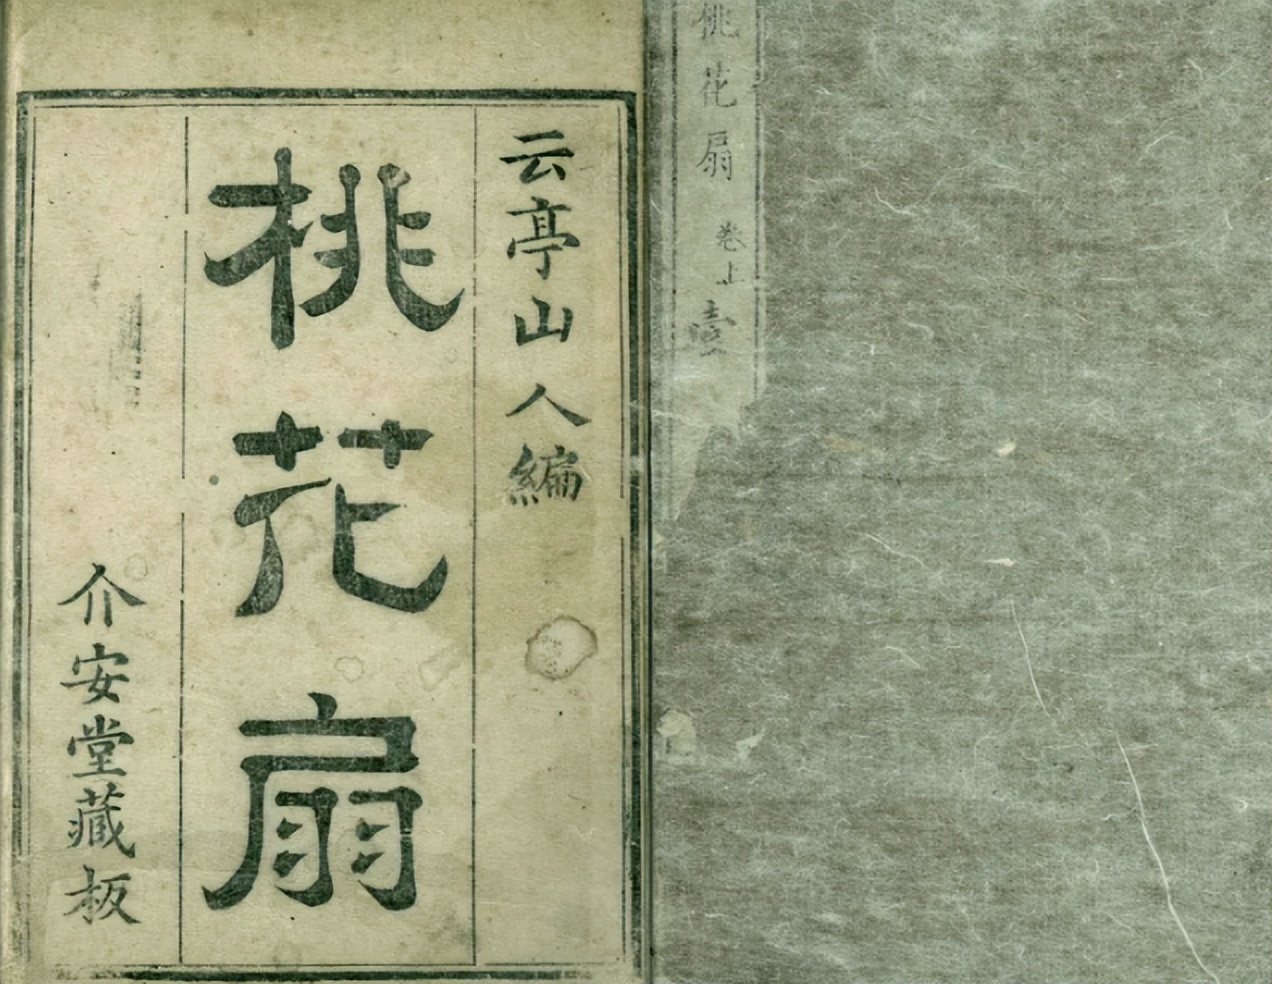 云亭山人編
桃花扇
介安堂藏板
桃花扇 卷上 壹